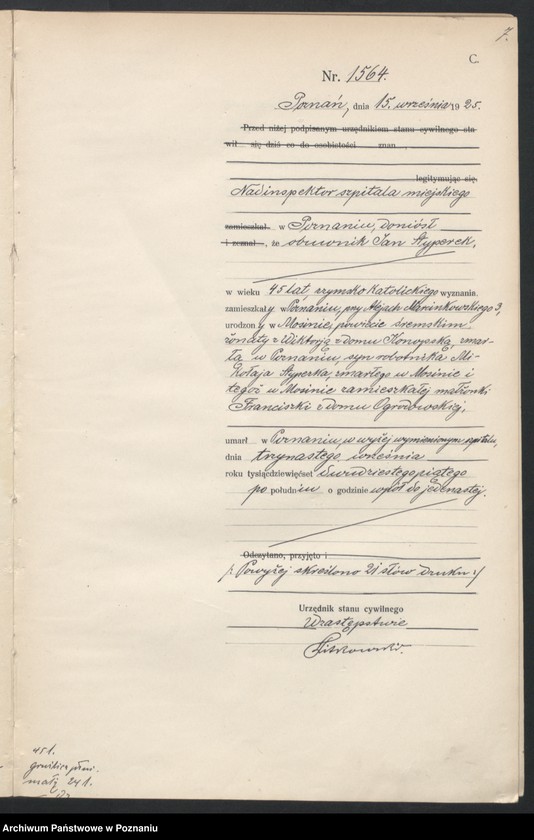 7.
C.
Nr. 1564.
Poznań, dnia 15. września 1925.
Przed niżej podpisanym urzędnikiem stanu cywilnego sta
wił się dziś co do osobistości znan
legitymując się
Nadinspektor szpitala miejskiego
zamieszkał w Poznaniu, doniósł
i zeznał, że obuwnik Jan Styperek,
w wieku 45 lat rzymsko katolickiego wyznania,
zamieszkały w Poznaniu, przy Alejach Marcinkowskiego 3,
urodzony w Mosinie, powiecie śremskim
żonaty z Wiktorją z domu Konopską, zmar-
łą w Poznaniu, syn robotnika Mi-
kołaja Styperka, zmarłego w Mosinie i
tegoż w Mosinie zamieszkałej małżonki
Franciszki z domu Ogrodowskiej,
umarł w Poznaniu, w wyżej wymienionym szpitalu,
dnia trzynastego września
roku tysiącdziewięćset dwudziestego piątego
po południu o godzinie wpół do jedenastej.
Odczytano, przyjęto i
/: Powyżej skreślono 21 słów druku :/
Urzędnik stanu cywilnego
W zastępstwie
451.
małż 241.
Archiwum Państwowe w Poznaniu